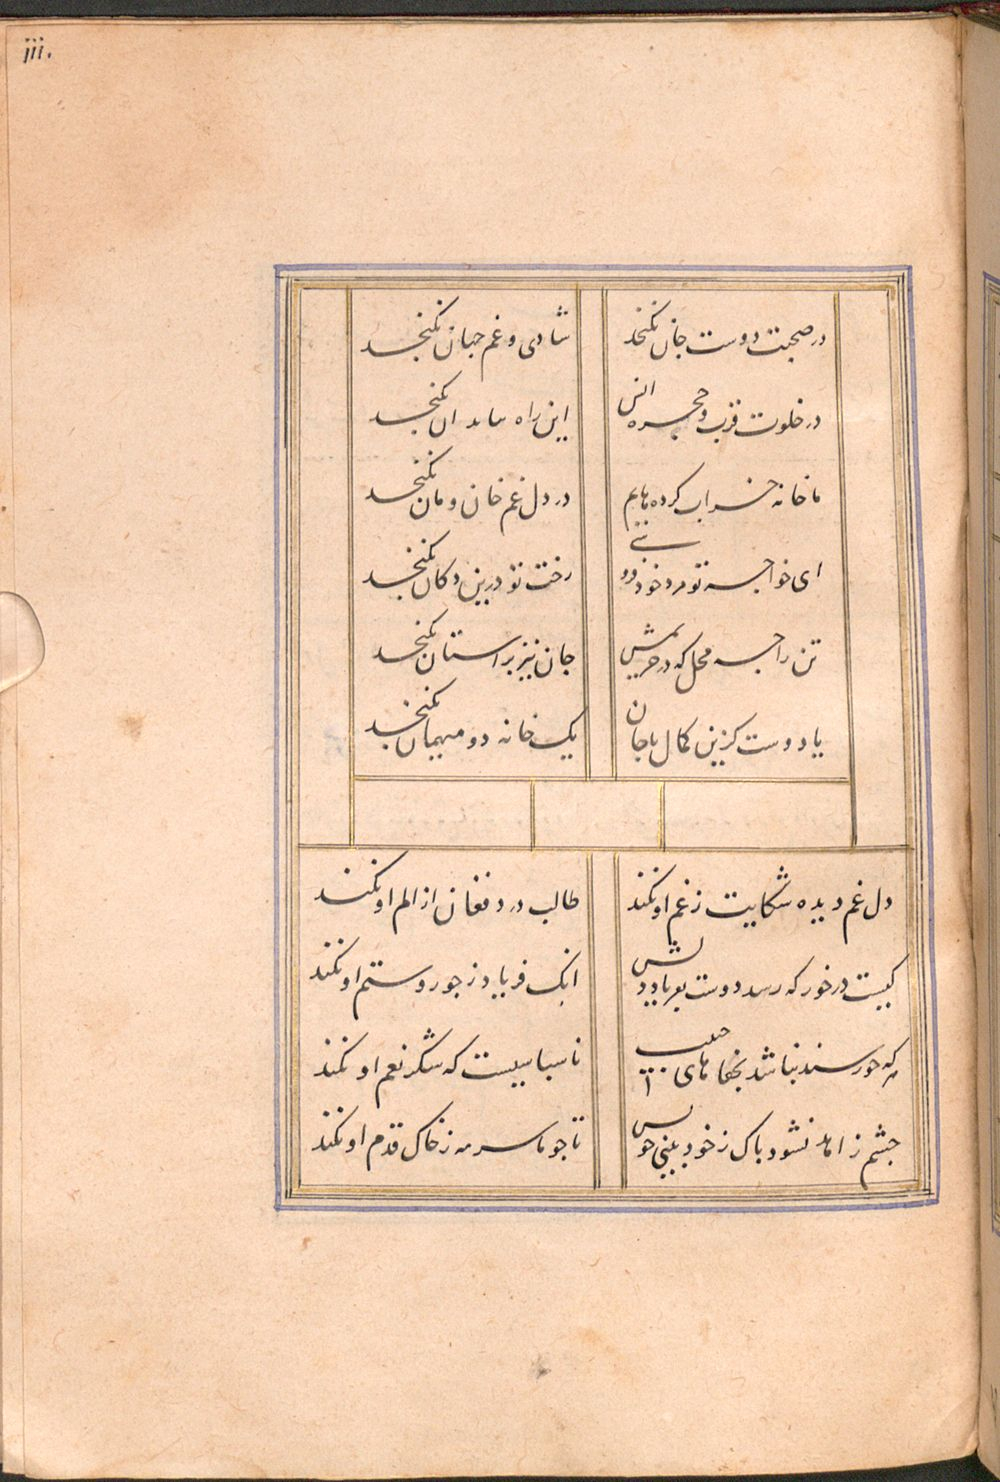 iii.
در صحبت دوست جان نکنجد
شادی و غم جهان نکنجد
در خلوت قرب و حجره انس
این راه ساند ان نکنجد
ما خانه خراب کرده مایم
در دل غم خان و مان نکنجد
ای خواجه تو مرد خود فروشی
رخت تو درین دکان نکنجد
تن را چه محل که در حریمش
جان نیز بر استان نکنجد
یا دوست کزین کمال یا جان
یک خانه دو میهمان نکنجد
دل غم دیده شکایت ز غم او نکند
طالب درد فغان از الم او نکند
کیست در خور که رسد دوست بفریاد دلش
انک فریاد ز جور و ستم او نکند
که خورسند نباشد بجفاهای حبیب
ناسپاسیست که شکر نعم او نکند
چشم زاهد نشود پاک ز خود بینی خویش
تا چو ما سرمه ز خاک قدم او نکند